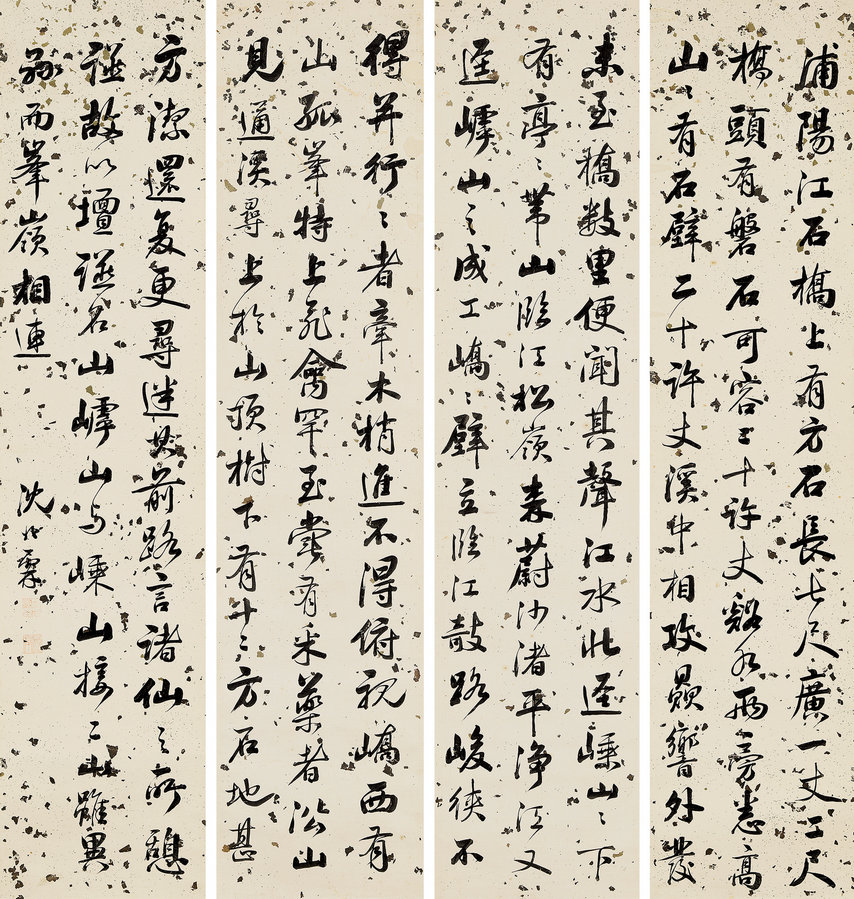 浦陽江石橋上有方石長七尺廣一丈二尺
橋頭有磐石可容二十許丈谿水兩旁悉高
山〻有石壁二十許丈溪中相攻贔響外發
未至橋數里便聞其聲江水北逕嵊山〻下
有亭〻帶山臨江松嶺森蔚沙渚平淨江又
逕嶀山之成工嶠〻壁立臨江欹路峻狹不
得并行〻者牽木稍進不得俯視嶠西有
山孤峯特上飛禽罕至嘗有采藥者沿山
見通溪尋上於山頂樹下有十二方石地甚
方潔還復更尋迷其前路言諸仙之所憩
讌故以壇讌名山嶀山与嵊山接二山雖異
縣而峯嶺相連
沈兆霖